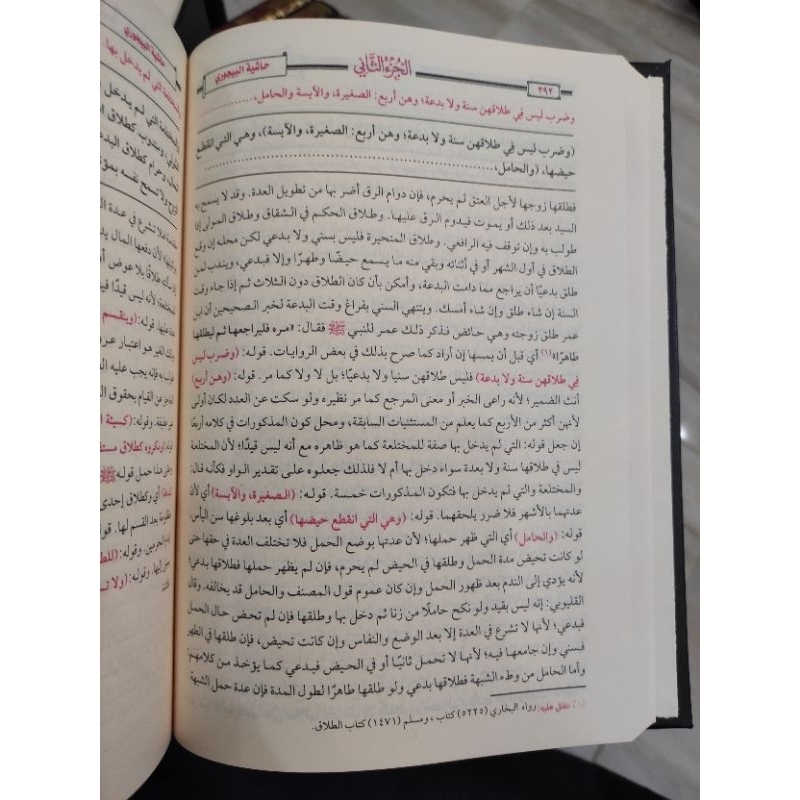 حاشية البيجوري
الجزء الثاني
٢٩٢
وضرب ليس في طلاقهن سنة ولا بدعة؛ وهن أربع: الصغيرة، والآيسة والحامل،
(وضرب ليس في طلاقهن سنة ولا بدعة؛ وهن أربع: الصغيرة، والآيسة)، وهي التي انقطع
حيضها، (والحامل،
فطلقها زوجها لأجل العتق لم يحرم، فإن دوام الرق أضر بها من تطويل العدة. وقد لا يسمح به
السيد بعد ذلك أو يموت فيدوم الرق عليها. وطلاق الحكم في الشقاق وطلاق المولى إذا
طولب به وإن توقف فيه الرافعي. وطلاق المتحيرة فليس بسني ولا بدعي لكن محله إن وقع
الطلاق في أول الشهر أو في أثنائه وبقي منه ما يسمع حيضًا وطهرًا وإلا فبدعي، ويندب لمن
طلق بدعيًا أن يراجع مما دامت البدعة، وأمكن بأن كان الطلاق دون الثلاث ثم إذا جاء وقت
السنة إن شاء طلق وإن شاء أمسك. وينتهي السني بفراغ وقت البدعة لخبر الصحيحين أن ابن
عمر طلق زوجته وهي حائض فذكر ذلك عمر للنبي ﷺ فقال: «مره فليراجعها ثم ليطلقها
طاهرًا»(١) أي قبل أن يمسها إن أراد كما صرح بذلك في بعض الروايات. قوله: (وضرب ليس
في طلاقهن سنة ولا بدعة) فليس طلاقهن سنيا ولا بدعيًا؛ بل لا ولا كما مر. قوله: (وهن أربع)
أنث الضمير؛ لأنه راعى الخبر أو معنى المرجع كما مر نظيره ولو سكت عن العدد لكان أولى
لأنهن أكثر من الأربع كما يعلم من المستثنيات السابقة، ومحل كون المذكورات في كلامه أربعًا
إن جعل قوله: التي لم يدخل بها صفة للمختلعة كما هو ظاهره مع أنه ليس قيدًا؛ لأن المختلعة
ليس في طلاقها سنة ولا بعدة سواء دخل بها أم لا فلذلك جعلوه على تقدير الواو فكأنه قال:
والمختلعة والتي لم يدخل بها فتكون المذكورات خمسة. قوله: (الصغيرة، والآيسة) أي لأن
عدتهما بالأشهر فلا ضرر يلحقهما. قوله: (وهي التي انقطع حيضها) أي بعد بلوغها سن اليأس.
قوله: (والحامل) أي التي ظهر حملها؛ لأن عدتها بوضع الحمل فلا تختلف العدة في حقها حتى
لو كانت تحيض مدة الحمل وطلقها في الحيض لم يحرم، فإن لم يظهر حملها فطلاقها بدعي؛
لأنه يؤدي إلى الندم بعد ظهور الحمل وإن كان عموم قول المصنف والحامل قد يخالفه. وقال
القليوبي: إنه ليس بقيد ولو نكح حاملًا من زنا ثم دخل بها وطلقها فإن لم تحض حال الحمل
فبدعي؛ لأنها لا تشرع في العدة إلا بعد الوضع والنفاس وإن كانت تحيض، فإن طلقها في الطهر
فسني وإن جامعها فيه؛ لأنها لا تحمل ثانيًا أو في الحيض فبدعي كما يؤخذ من كلامهم.
وأما الحامل من وطء الشبهة فطلاقها بدعي ولو طلقها طاهرًا لطول المدة فإن عدة حمل الشبهة
(١) متفق عليه: رواه البخاري (٥٢٢٥) كتاب، ومسلم (١٤٧١) كتاب الطلاق.